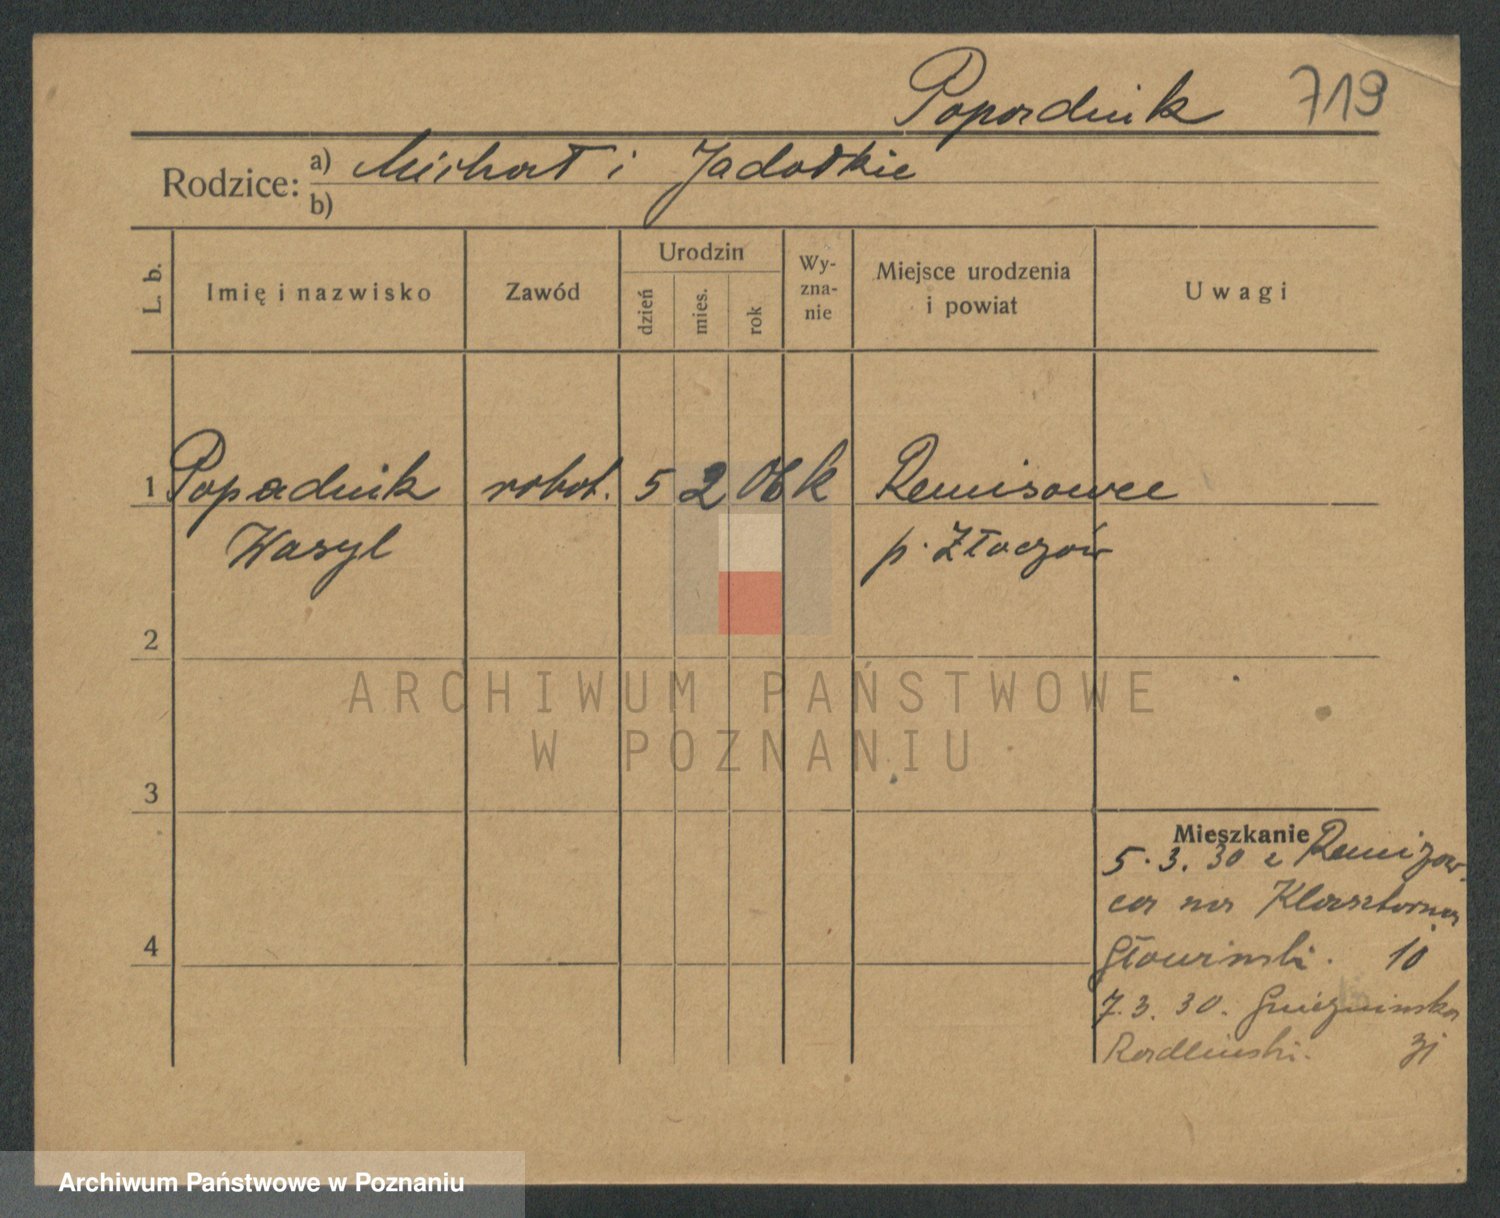 Popadnik 719
Rodzice: a) Michał i
b)
L. b. Imię i nazwisko Zawód Urodzin dzień mies. rok Wy-zna-nie Miejsce urodzenia i powiat Uwagi
1 Popadnik robot. 5 2 06 k Remisowce
Wasyl p. Złoczów
2
ARCHIWUM PAŃSTWOWE
W POZNANIU
3
Mieszkanie
5.3.30 z Remizow-
ca na Klasztorna
Głowinski. 10
7.3.30. Gniezninska
Radlinski.
4
Archiwum Państwowe w Poznaniu